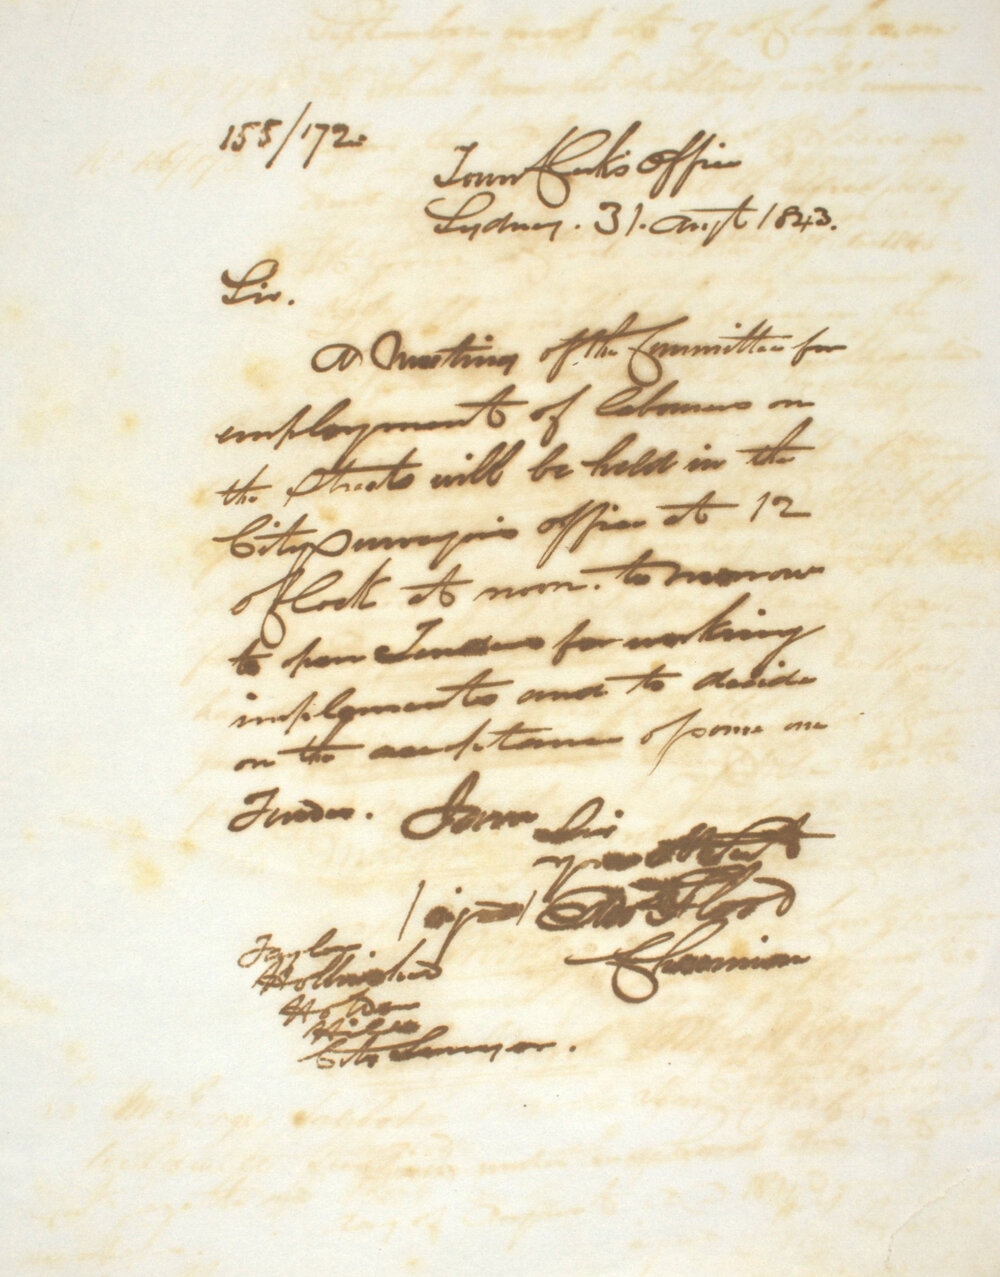 155/172.
Town Clerk's Office
Sydney. 31. Augt 1843.
Sir.
A Meeting of the Committee for
employment of labourers on
the Streets will be held in the
City Surveyors office at 12
o'Clock at noon. to morrow
to open Tenders for working
implements and to decide
on the acceptance of some one
Tender. I am Sir
(signed) Flood
Chairman
Taylor
Hollinshed
Holden
Hill
City Surveyor.